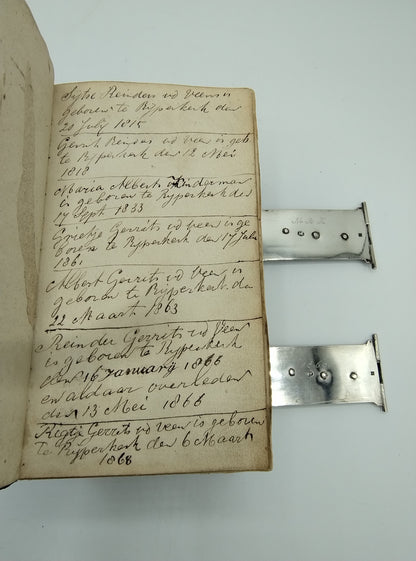 Sytse Reinders vd Veen is
geboren te Rijperkerk den
20 July 1815
Gerrit Reinders vd Veer is geb
te Rijperkerk den 12 Mei
1818
Maria Alberts Kinderman
is geboren te Rijperkerk den
17 Sept 1833
Grietje Gerrits vd veer is ge
boren te Rijperkerk den 17 Julij
1861
Albert Gerrits vd Veer is
geboren te Rijperkerk den
22 Maart 1863
Reinder Gerrits vd Veer
is geboren te Rijperkerk
den 16 Januarij 1866
en aldaar overleden
den 13 Mei 1866
Rigtje Gerrits vd Veer is geboren
te Rijperkerk den 6 Maart
1868